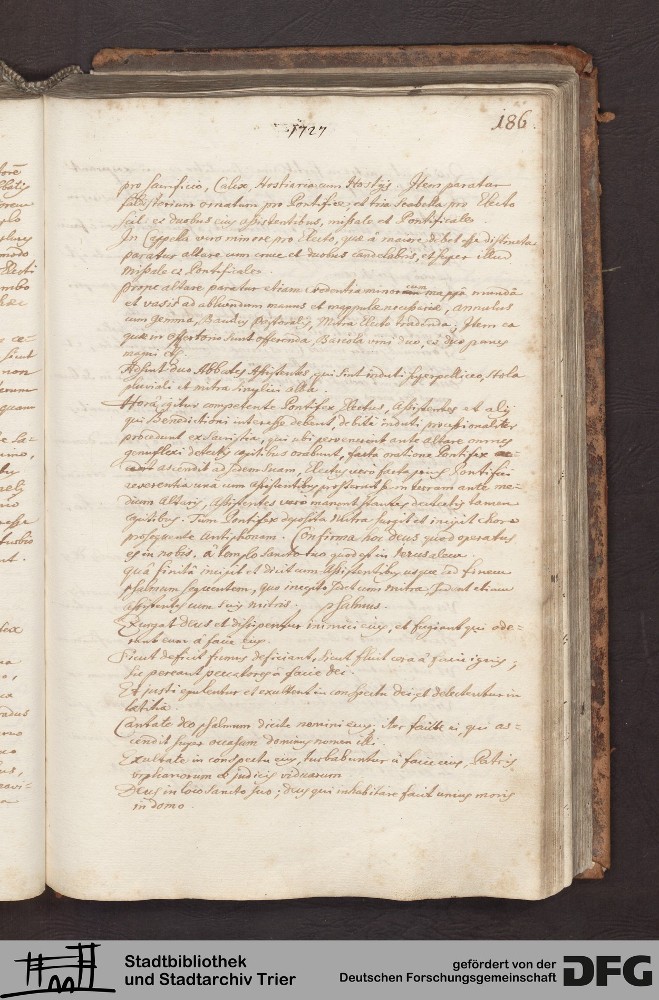 1727
186
pro sacrificio, Calix, Hostiaria cum Hostijs. Item paratur
faldistorium ornatum pro Pontifice, et tria scabella pro Electo
scil. et duobus eius assistentibus, missale et Pontificale
In Cappella vero minore pro Electo, quæ à maiore debet esse distincta
paratur altare cum cruce et duobus candelabris, et super illud
Missale et Pontificale.
Prope altare paratur etiam credentia minor cum mappâ mundâ
et vasis ad abluendum manus et mappulæ necessariæ, annulus
cum gemma, Baculus Pastoralis, Mitra Electo tradenda; Item ea
quæ in offertorio sunt offerenda, Bariola vini duo, et duo panes
magni
Assint duo Abbates Assistentes qui sint induti superpelliceo, stola
pluviali et mitra simplici alba.
Horâ igitur competente Pontifex Electus, Assistentes et alij
qui benedictioni interesse debent, debite induti processionaliter
procedunt ex Sacristia, qui ubi pervenerint ante altare omnes
genuflexi detectis capitibus orabunt, facta oratione Pontifex
ascendit ad sedem suam, Electus vero facta prius Pontifici
reverentia una cum assistentibus prosternit se in terram ante me-
dium Altaris, Assistentes vero manent stantes detectis tamen
capitibus. Tum Pontifex deposita Mitra surgit et incipit choro
prosequente Antiphonam. Confirma hoc Deus quod operatus
es in nobis, à templo sancto tuo quod est in Jerusalem.
quâ finitâ incipit et dicit cum Assistentibus usque ad finem
psalmum sequentem, quo incepto sedet cum mitra sedent etiam
assistentes cum suis mitris. psalmus.
Exurgat Deus et dissipentur inimici eius, et fugiant qui ode-
runt eum à facie eius.
Sicut deficit fumus deficiant, sicut fluit cera à facie ignis,
sic pereant peccatores à facie dei.
Et justi epulentur et exultent in conspectu dei et delectentur in
lætitia.
Cantate deo psalmum dicite nomini eius. iter facite ei, qui as-
cendit super occasum dominus nomen illi.
Exultate in conspectu eius, turbabuntur à facie eius, Patris
orphanorum et judicis viduarum
Deus in loco sancto suo; deus qui inhabitare facit unius moris
in domo.
Stadtbibliothek
und Stadtarchiv Trier
gefördert von der
Deutschen Forschungsgemeinschaft
DFG